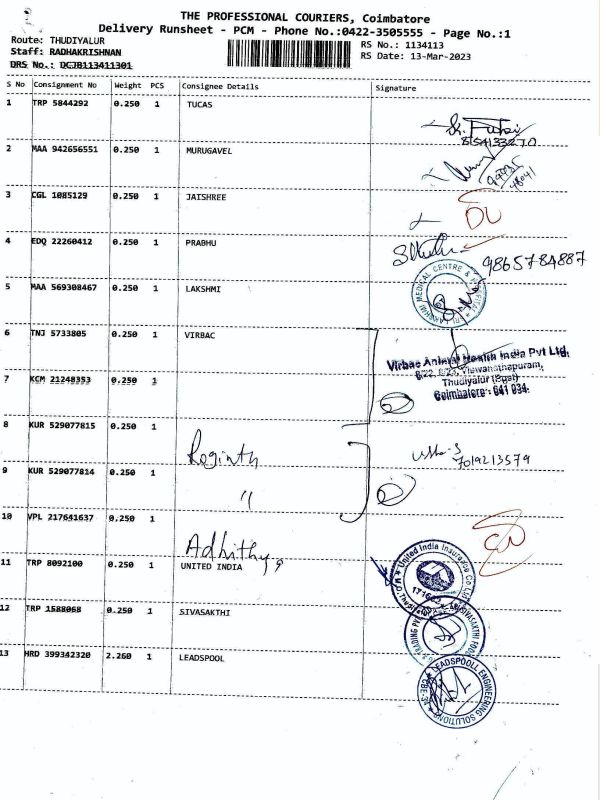 THE PROFESSIONAL COURIERS, Coimbatore
Delivery Runsheet - PCM - Phone No.:0422-3505555 - Page No.:1
Route: THUDIYALUR
RS No.: 1134113
Staff: RADHAKRISHNAN
RS Date: 13-Mar-2023
DRS No.: DCJB113411301
S No Consignment No Weight PCS Consignee Details Signature
1 TRP 5844292 0.250 1 TUCAS
8154133270
2 MAA 942656551 0.250 1 MURUGAVEL
3 CGL 1085129 0.250 1 JAISHREE
4 EDQ 22260412 0.250 1 PRABHU
9865784887
5 MAA 569308467 0.250 1 LAKSHMI
LAKSHMI MEDICAL CENTRE &
6 TNJ 5733805 0.250 1 VIRBAC
Virbac Animal Health India Pvt Ltd.
6/22, 6/23, Viswanathapuram,
7 KCM 21248353 0.250 1
Thudiyalur (Post)
Coimbatore - 641 034.
8 KUR 529077815 0.250 1
Roginth
Usha.S
7019213579
9 KUR 529077814 0.250 1
"
10 VPL 217641637 0.250 1
Adhithya
11 TRP 8092100 0.250 1 UNITED INDIA
United India Insurance Co Ltd
12 TRP 1588068 0.250 1 SIVASAKTHI
13 HRD 399342320 2.260 1 LEADSPOOL
LEADSPOOLL ENGINEERING SOLUTIONS
CBE-34